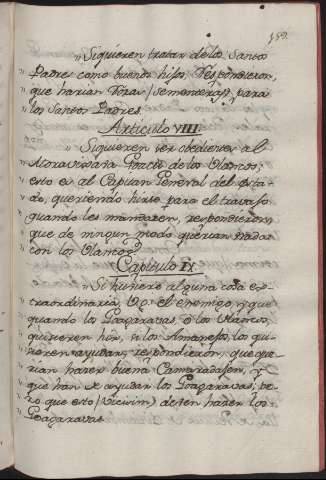 159.
„ Siquieren tratar de los Santos
„ Padres como buenos hijos, Respondieron,
„ que harian Rozas /sementeras/ para
„ los Santos Padres.
Articulo VIII.
„ Siquieren ser obedientes al
„ de los Blancos;
„ esto es al Capitan General del Esta-
„ do, queriendo hirse para el travajo
„ quando les mandaren, respondieron,
„ que de ningun modo querian nadas
„ con los Blancos.
Capitulo IX
„ Si huviere alguna cosa ex-
„ traordinaria, v.g. el enemigo, y que
„ quando los Goaçaravas, ó los Blancos,
„ quisieren hir, si los Amarefos los qui-
„ sieren ayudar; respondieron, que que-
„ rian hazer buena Camaradasen, y
„ que han de ayudar los Goaçaravas, pe-
„ ro que esto deven hazer los
„ Goaçaravas